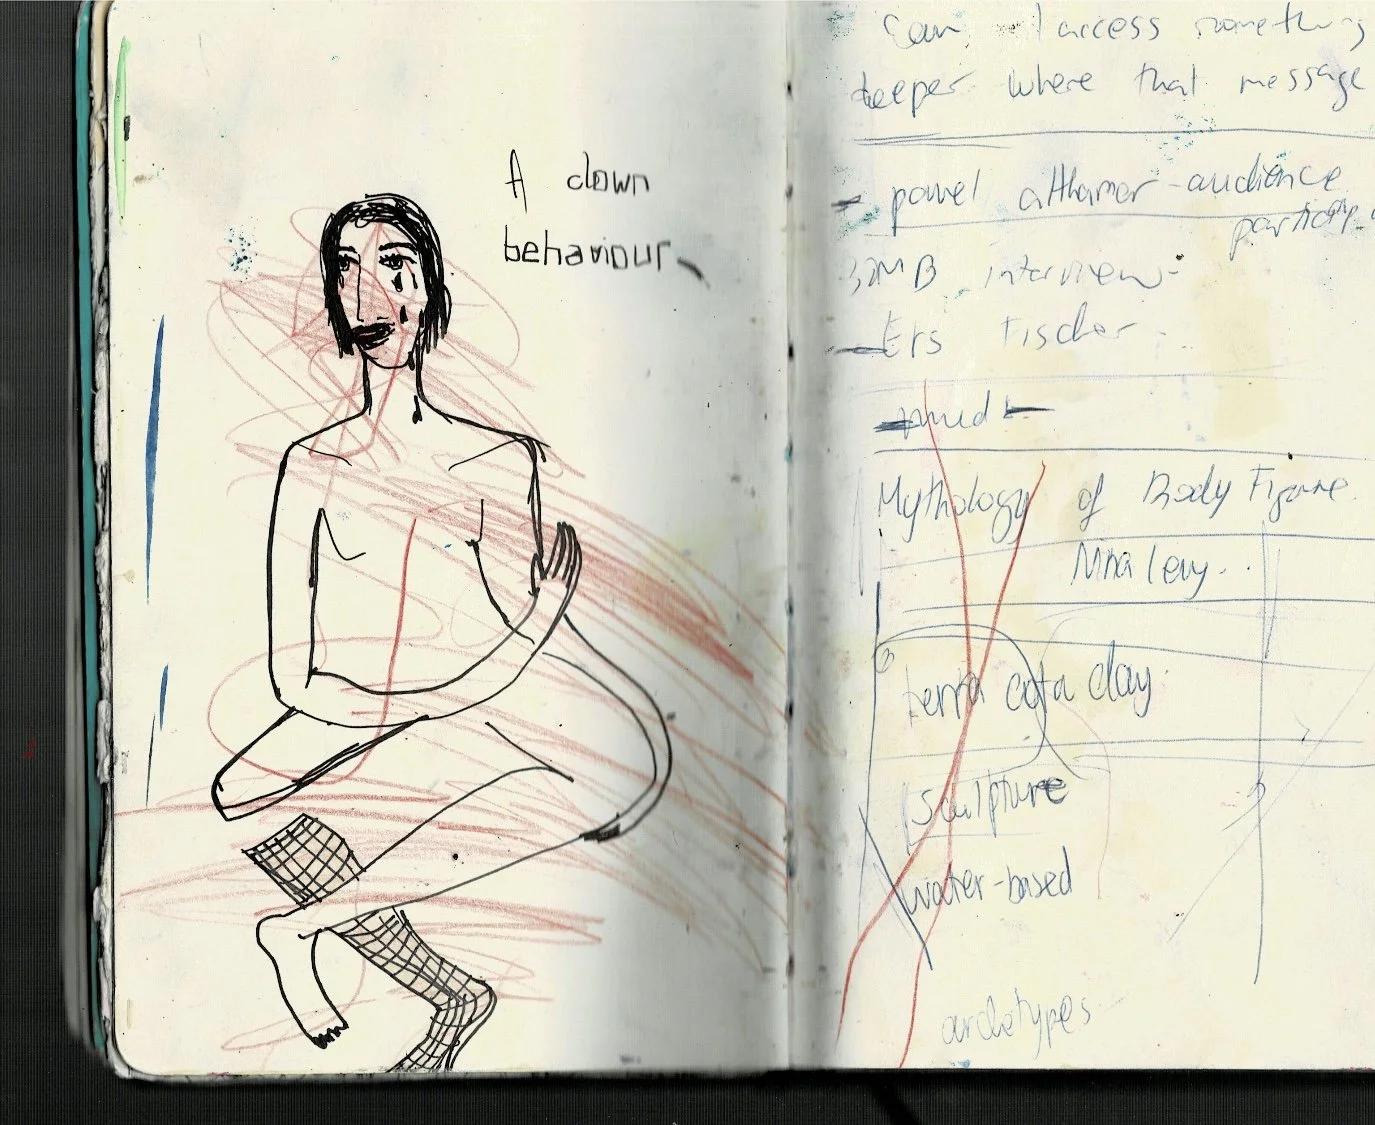 A clown
behaviour
Can I access something
deeper where that message
- pawel althamer - audience
particip.
interview -
- Urs Fischer.
Mythology of Body Figure.
levy.
terra cota clay.
Sculpture
water-based
archetypes